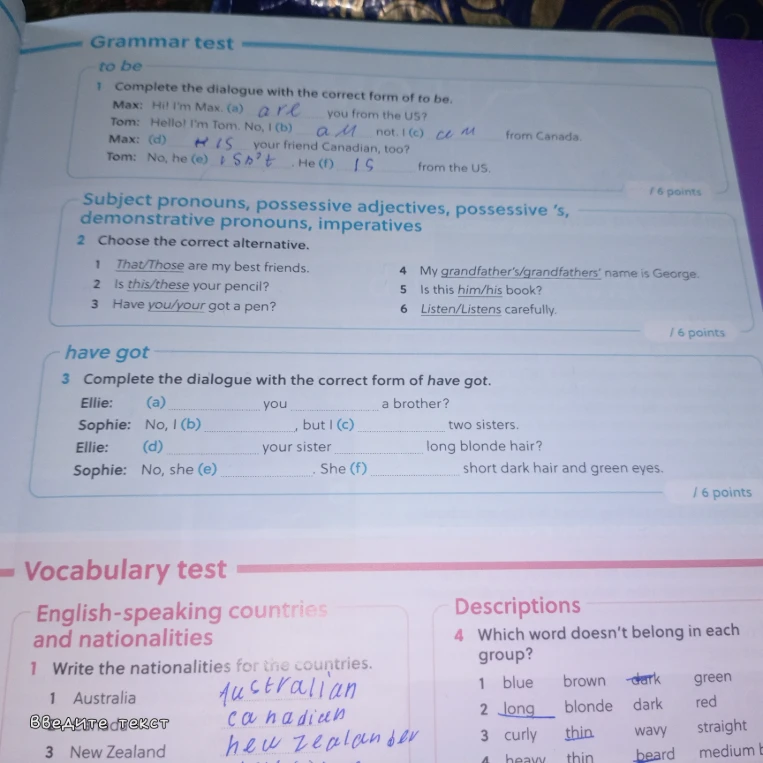 Grammar test
to be
1 Complete the dialogue with the correct form of to be.
Max: Hi! I'm Max. (a) are you from the US?
Tom: Hello! I'm Tom. No, I (b) am not. I (c) am from Canada.
Max: (d) is your friend Canadian, too?
Tom: No, he (e) isn't . He (f) is from the US.
/ 6 points
Subject pronouns, possessive adjectives, possessive 's,
demonstrative pronouns, imperatives
2 Choose the correct alternative.
1 That/Those are my best friends.
2 Is this/these your pencil?
3 Have you/your got a pen?
4 My grandfather's/grandfathers' name is George.
5 Is this him/his book?
6 Listen/Listens carefully.
/ 6 points
have got
3 Complete the dialogue with the correct form of have got.
Ellie: (a) you a brother?
Sophie: No, I (b) , but I (c) two sisters.
Ellie: (d) your sister long blonde hair?
Sophie: No, she (e) . She (f) short dark hair and green eyes.
/ 6 points
Vocabulary test
English-speaking countries
and nationalities
1 Write the nationalities for the countries.
1 Australia Australian
Введите текст canadian
3 New Zealand new zealander
Descriptions
4 Which word doesn't belong in each
group?
1 blue brown dark green
2 long blonde dark red
3 curly thin wavy straight
4 heavy thin beard medium b